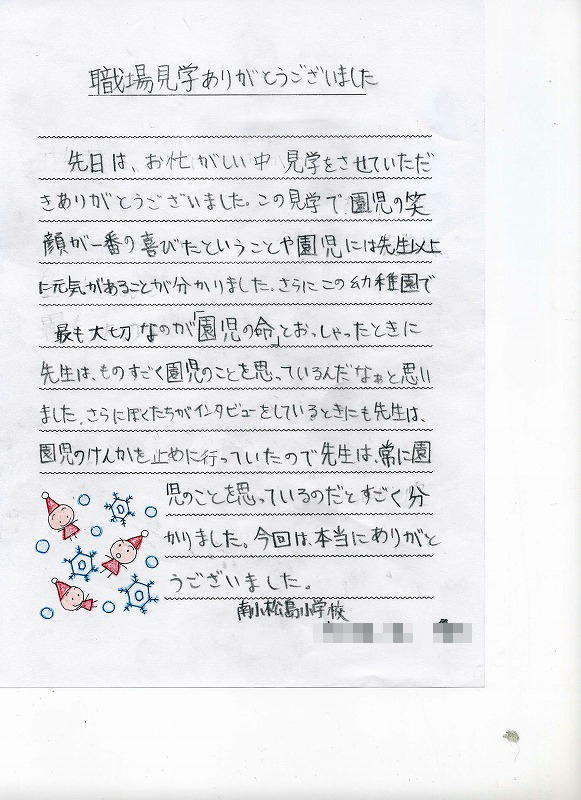 職場見学ありがとうございました
先日は、お忙がしい中見学をさせていただ
きありがとうございました。この見学で園児の笑
顔が一番の喜びたということや園児には先生以上
に元気があることが分かりました。さらにこの幼稚園で
最も大切なのが「園児の命」とおっしゃったときに
先生は、ものすごく園児のことを思っているんだなぁと思い
ました。さらにぼくたちがインタビューをしているときにも先生は、
園児のけんかを止めに行っていたので先生は、常に園
児のことを思っているのだとすごく分
かりました。今回は、本当にありがと
うございました。
南小松島小学校